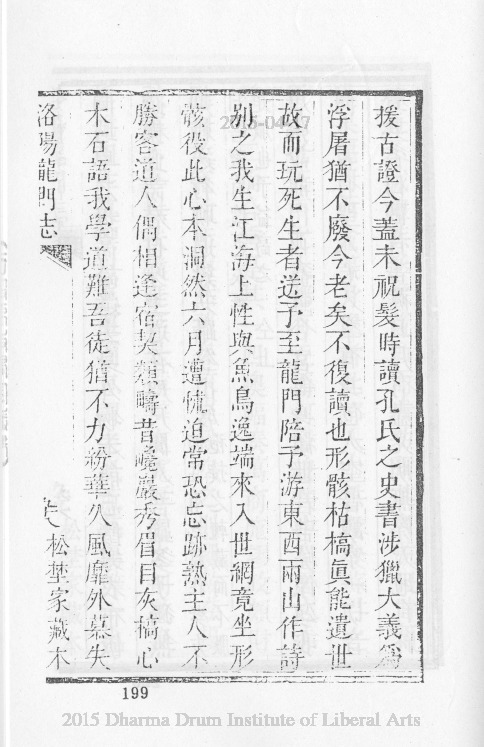 援古證今蓋未祝髮時讀孔氏之史書涉獵大義為
浮屠猶不廢今老矣不復讀也形骸枯槁真能遺世
故而玩死生者送予至龍門陪予游東西兩山作詩
別之我生江海上性與魚鳥逸端來入世網竟坐形
骸役此心本洞然六月遭
迫常恐忘跡熟主人不
勝客道人偶相逢宿契
疇昔巉巖秀眉目灰槁心
木石語我學道難吾徒猶不力紛華久風靡外慕失
洛陽龍門志
松埜家藏木
199
2015-04-
2015 Dharma Drum Institute of Liberal Arts